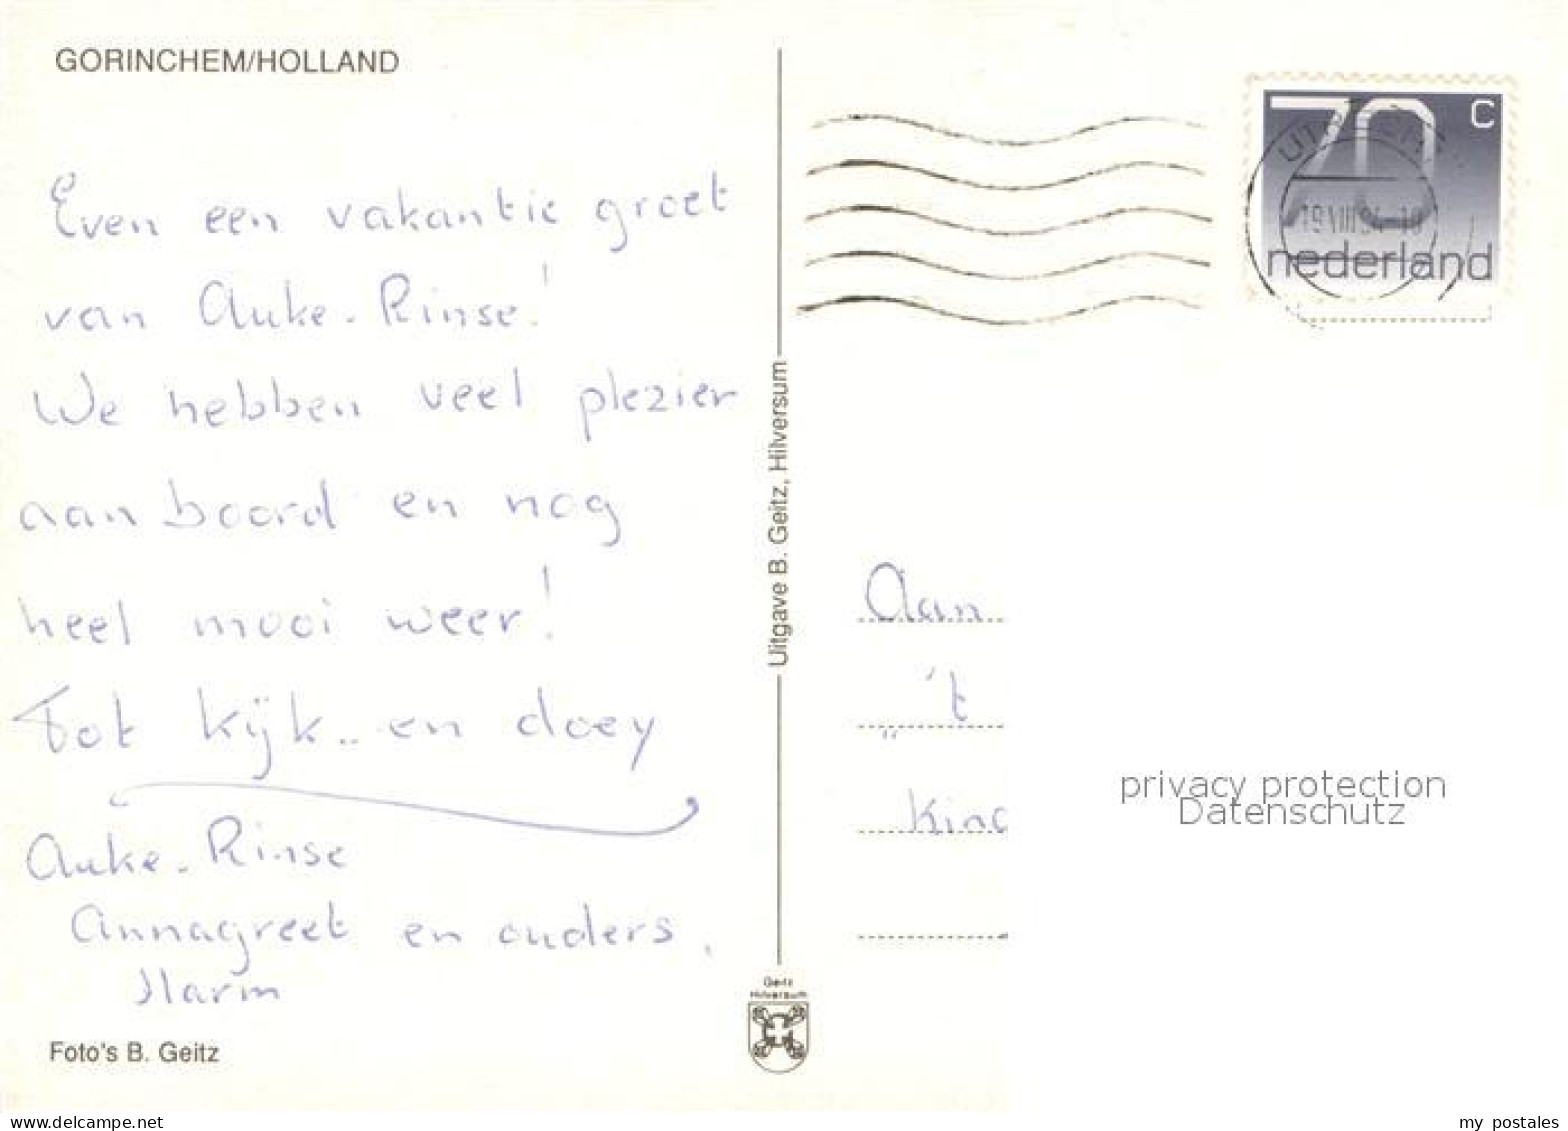 GORINCHEM/HOLLAND
Even een vakantie groet
van Auke-Rinse!
We hebben veel plezier
aan boord en nog
heel mooi weer!
Tot kijk.. en doey
Auke-Rinse
Annagreet en ouders,
Harm
Foto's B. Geitz
Uitgave B. Geitz, Hilversum
Geitz
Hilversum
70 c
nederland
19.VIII.94-18
Aan
't
Kind
privacy protection
Datenschutz
delcampe.net
my_postales